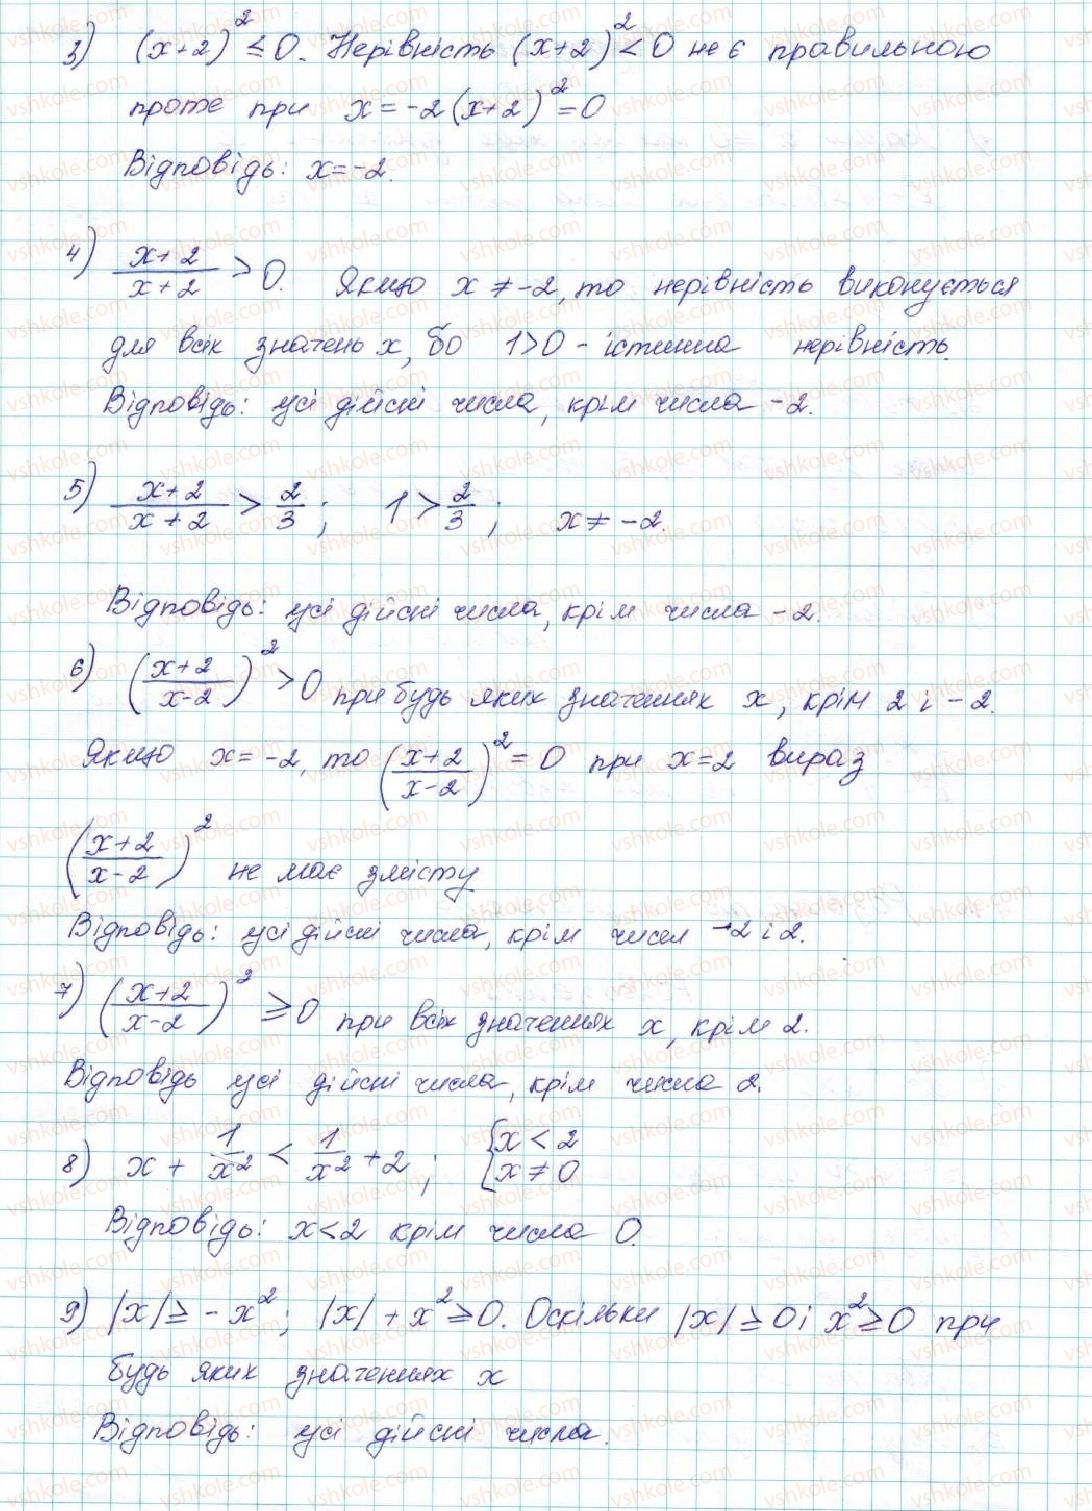 3) (x+2)² ≤ 0. Нерівність (x+2)² < 0 не є правильною
проте при x = -2 (x+2)² = 0
Відповідь: x = -2.
4) (x+2)/(x+2) > 0. Якщо x ≠ -2, то нерівність виконується
для всіх значень x, бо 1>0 - істинна нерівність.
Відповідь: усі дійсні числа, крім числа -2.
5) (x+2)/(x+2) > 2/3; 1 > 2/3; x ≠ -2.
Відповідь: усі дійсні числа, крім числа -2.
6) ((x+2)/(x-2))² > 0 при будь яких значеннях x, крім 2 і -2.
Якщо x = -2, то ((x+2)/(x-2))² = 0 при x=2 вираз
((x+2)/(x-2))² не має змісту
Відповідь: усі дійсні числа, крім чисел -2 і 2.
7) ((x+2)/(x-2))² ≥ 0 при всіх значеннях x, крім 2.
Відповідь усі дійсні числа, крім числа 2.
8) x + 1/x² < 1/x² + 2; { x < 2 x ≠ 0
Відповідь: x<2 крім числа 0.
9) |x| ≥ -x²; |x| + x² ≥ 0. Оскільки |x| ≥ 0 і x² ≥ 0 при
будь яких значеннях x
Відповідь: усі дійсні числа.